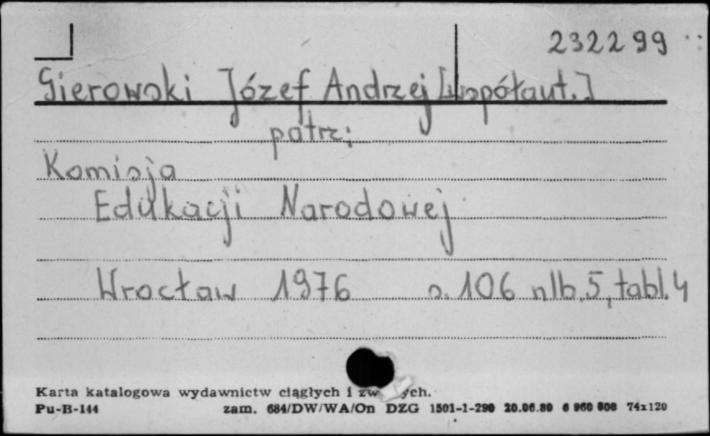 232299
Gierowski Józef Andrzej [współaut.]
patrz:
Komisja
Edukacji Narodowej
Wrocław 1976 s. 106 nlb. 5, tabl. 4
Karta katalogowa wydawnictw ciągłych i
Pu-B-144 zam. 684/DW/WA/On DZG 1501-1-290 20.06.80 74x120